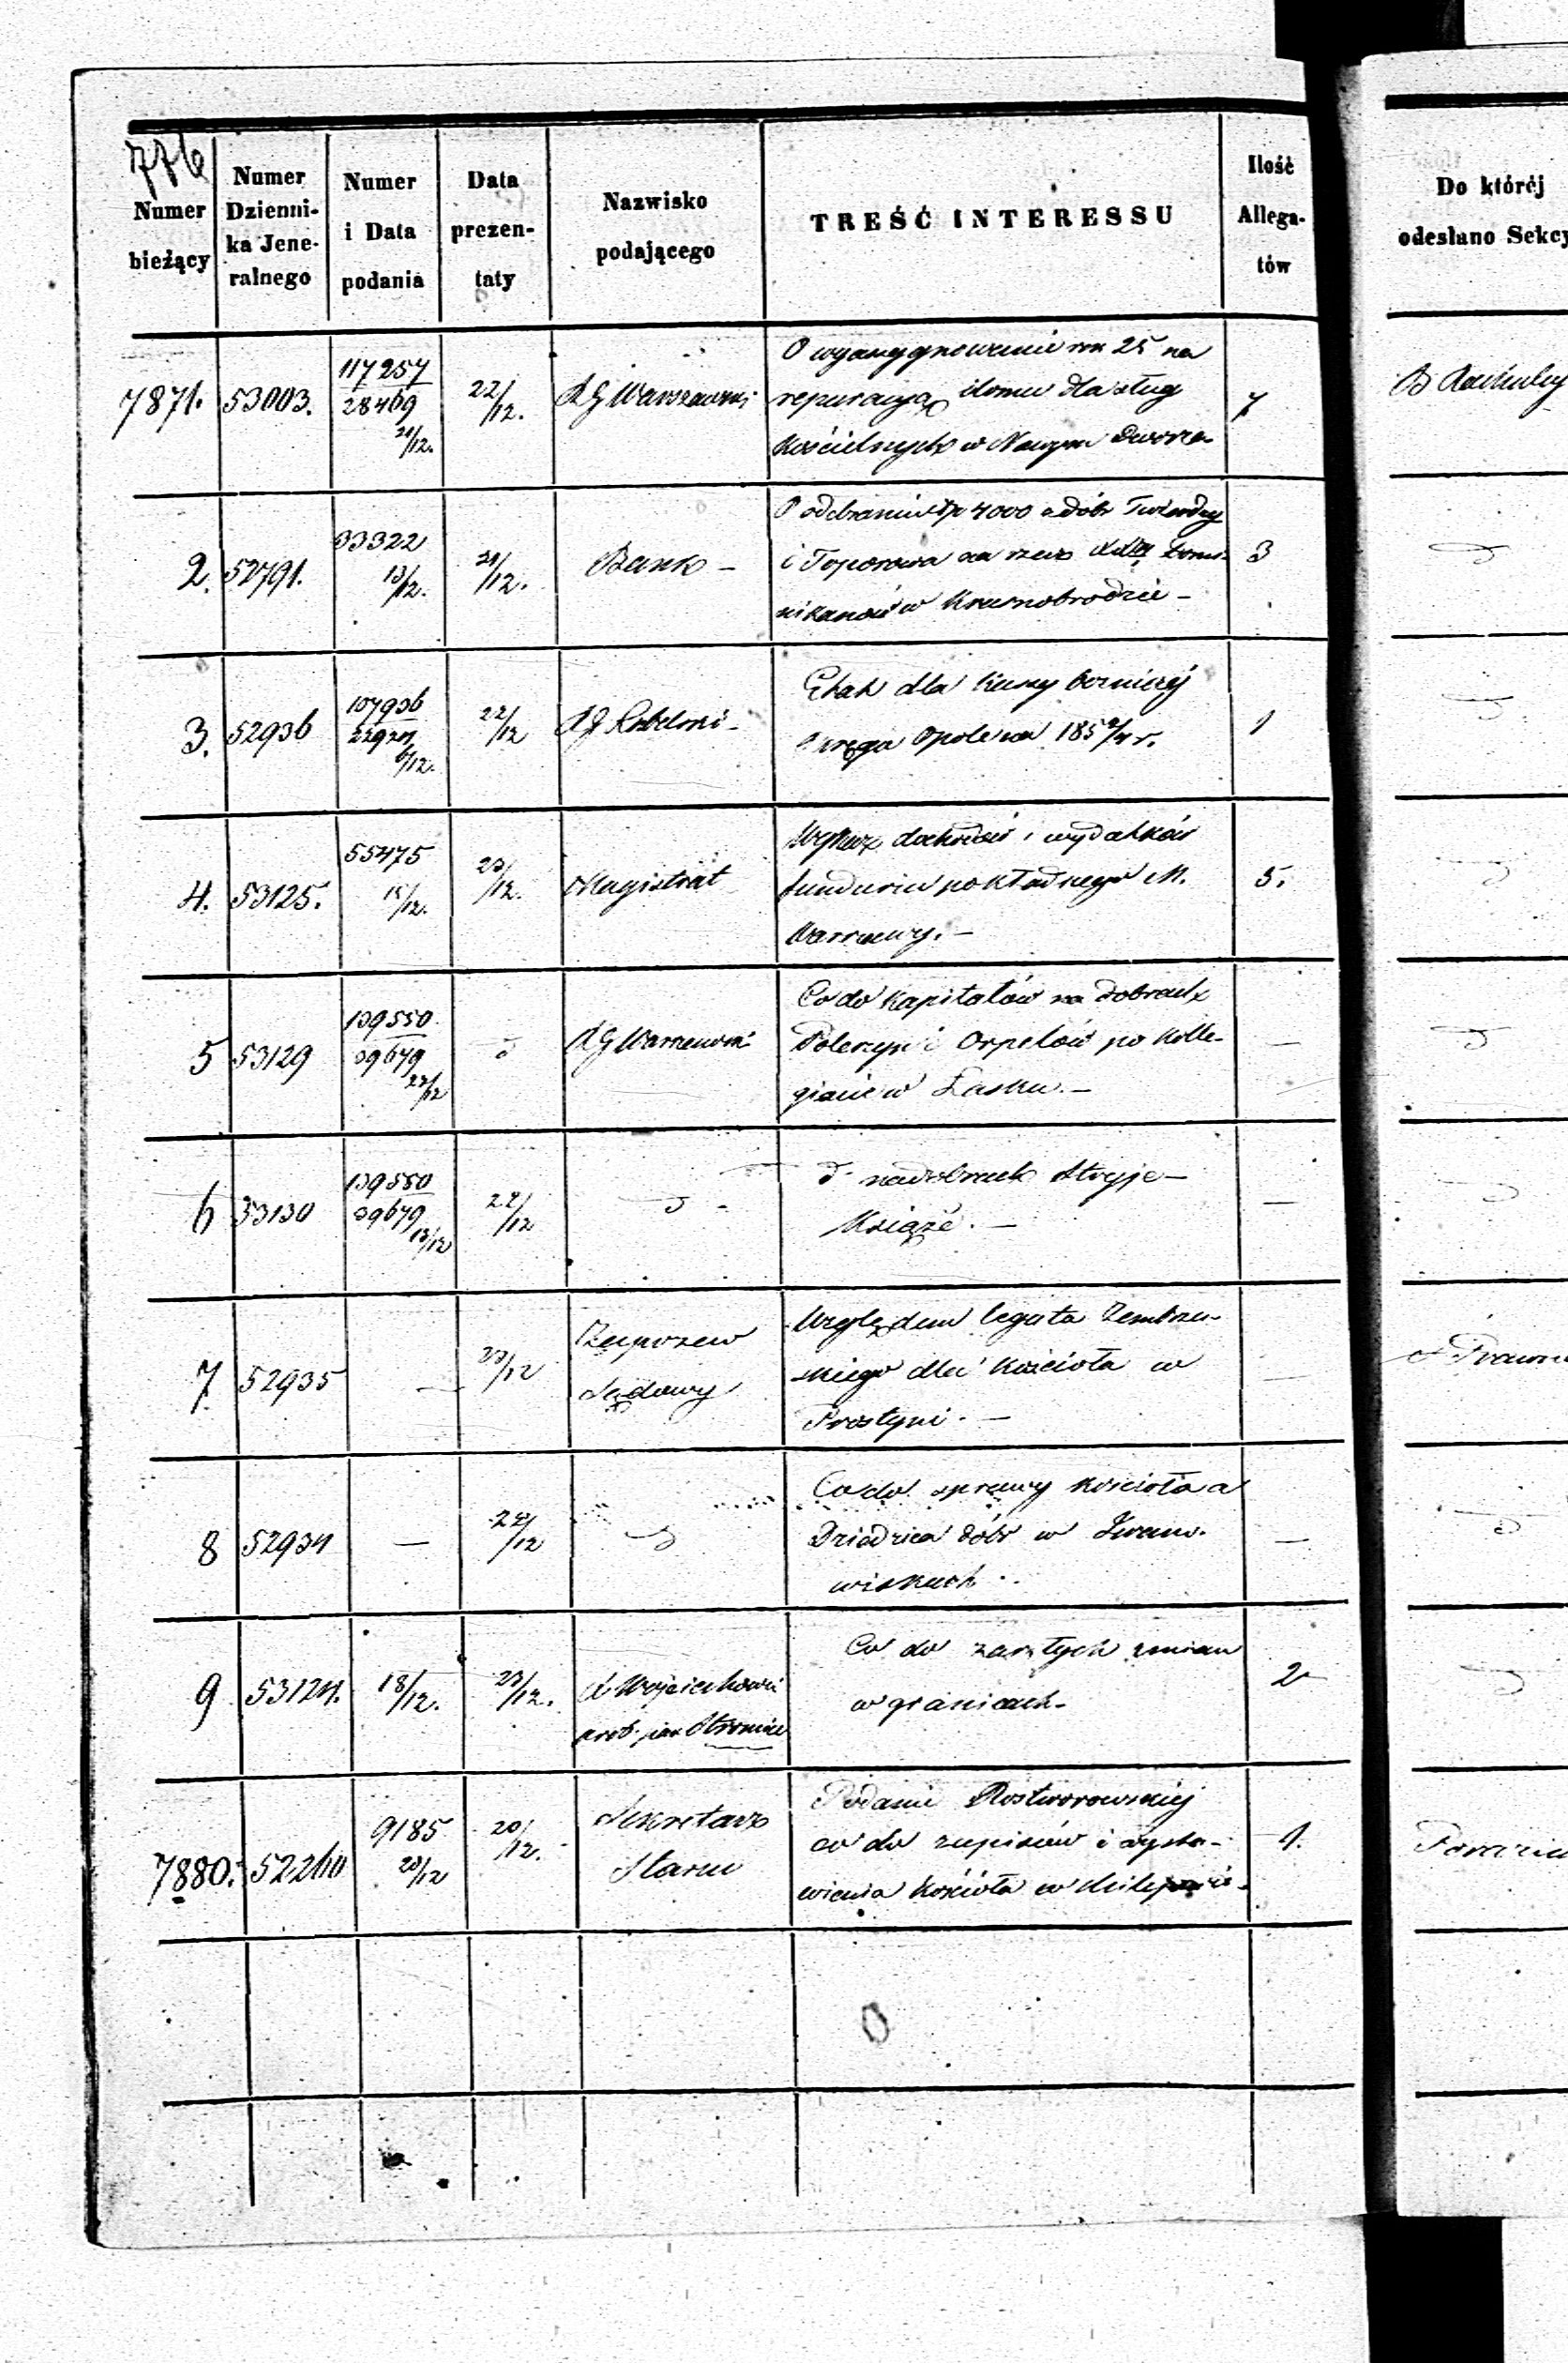 776
Numer bieżący
Numer Dzienni-
ka Jene-
ralnego
Numer
i Data
podania
Data
prezen-
taty
Nazwisko
podającego
TREŚĆ INTERESSU
Ilość
Allega-
tów
Do któréj
odesłano Sekcy
7871. 53003. 117257 28469 21/12. 22/12. R G Warszawski
O wyasygnowanie 25 na
reperacyą domu dla sług
Kościelnych w Nowym Dworze
7
2. 52791. 33322 13/12. 21/12. Bank -
O odebraniu 4000 z dóbr
i Toporowa na rzecz Domi-
nikanów w Krasnobrodzie -
3
3. 52936 107936 6/12. 22/12 R G Lubelski -
Etat dla Kassy
Okręgu Opole na 185
1
4. 53125. 55475 15/12. 23/12. Magistrat
Wykaz dochodów i wydatków
funduszu pokładnego M.
Warszawy. -
5.
5 53129 139550 39679 22/12 d R G Warszawski
Co do Kapitałów na dobrach
Poleszyn i Orpelów po Kolle-
giacie w Łasku. -
—
6 53130 139550 39679 13/12 22/12 d -
d na dobrach Stryje-
Książe. -
—
7. 52935 — 23/12 Zapozew
Sądowy
Względem legatu Zembrzu-
skiego dla Kościoła w
Prostyni. -
—
8 52934 — 22/12 d
Co do sprawy Kościoła a
Dziedzica dóbr w Iwano-
wiskach.
—
9 53124. 18/12. 23/12. X Wojciechowski
prob. par. Stromiec
Co do zaszłych zmian
w granicach -
2
7880. 52260 9185 20/12 20/12. Sekretarz
Stanu
Podanie Rostworowskiej
co do zapisów i wysta-
wienia Kościoła w
1.